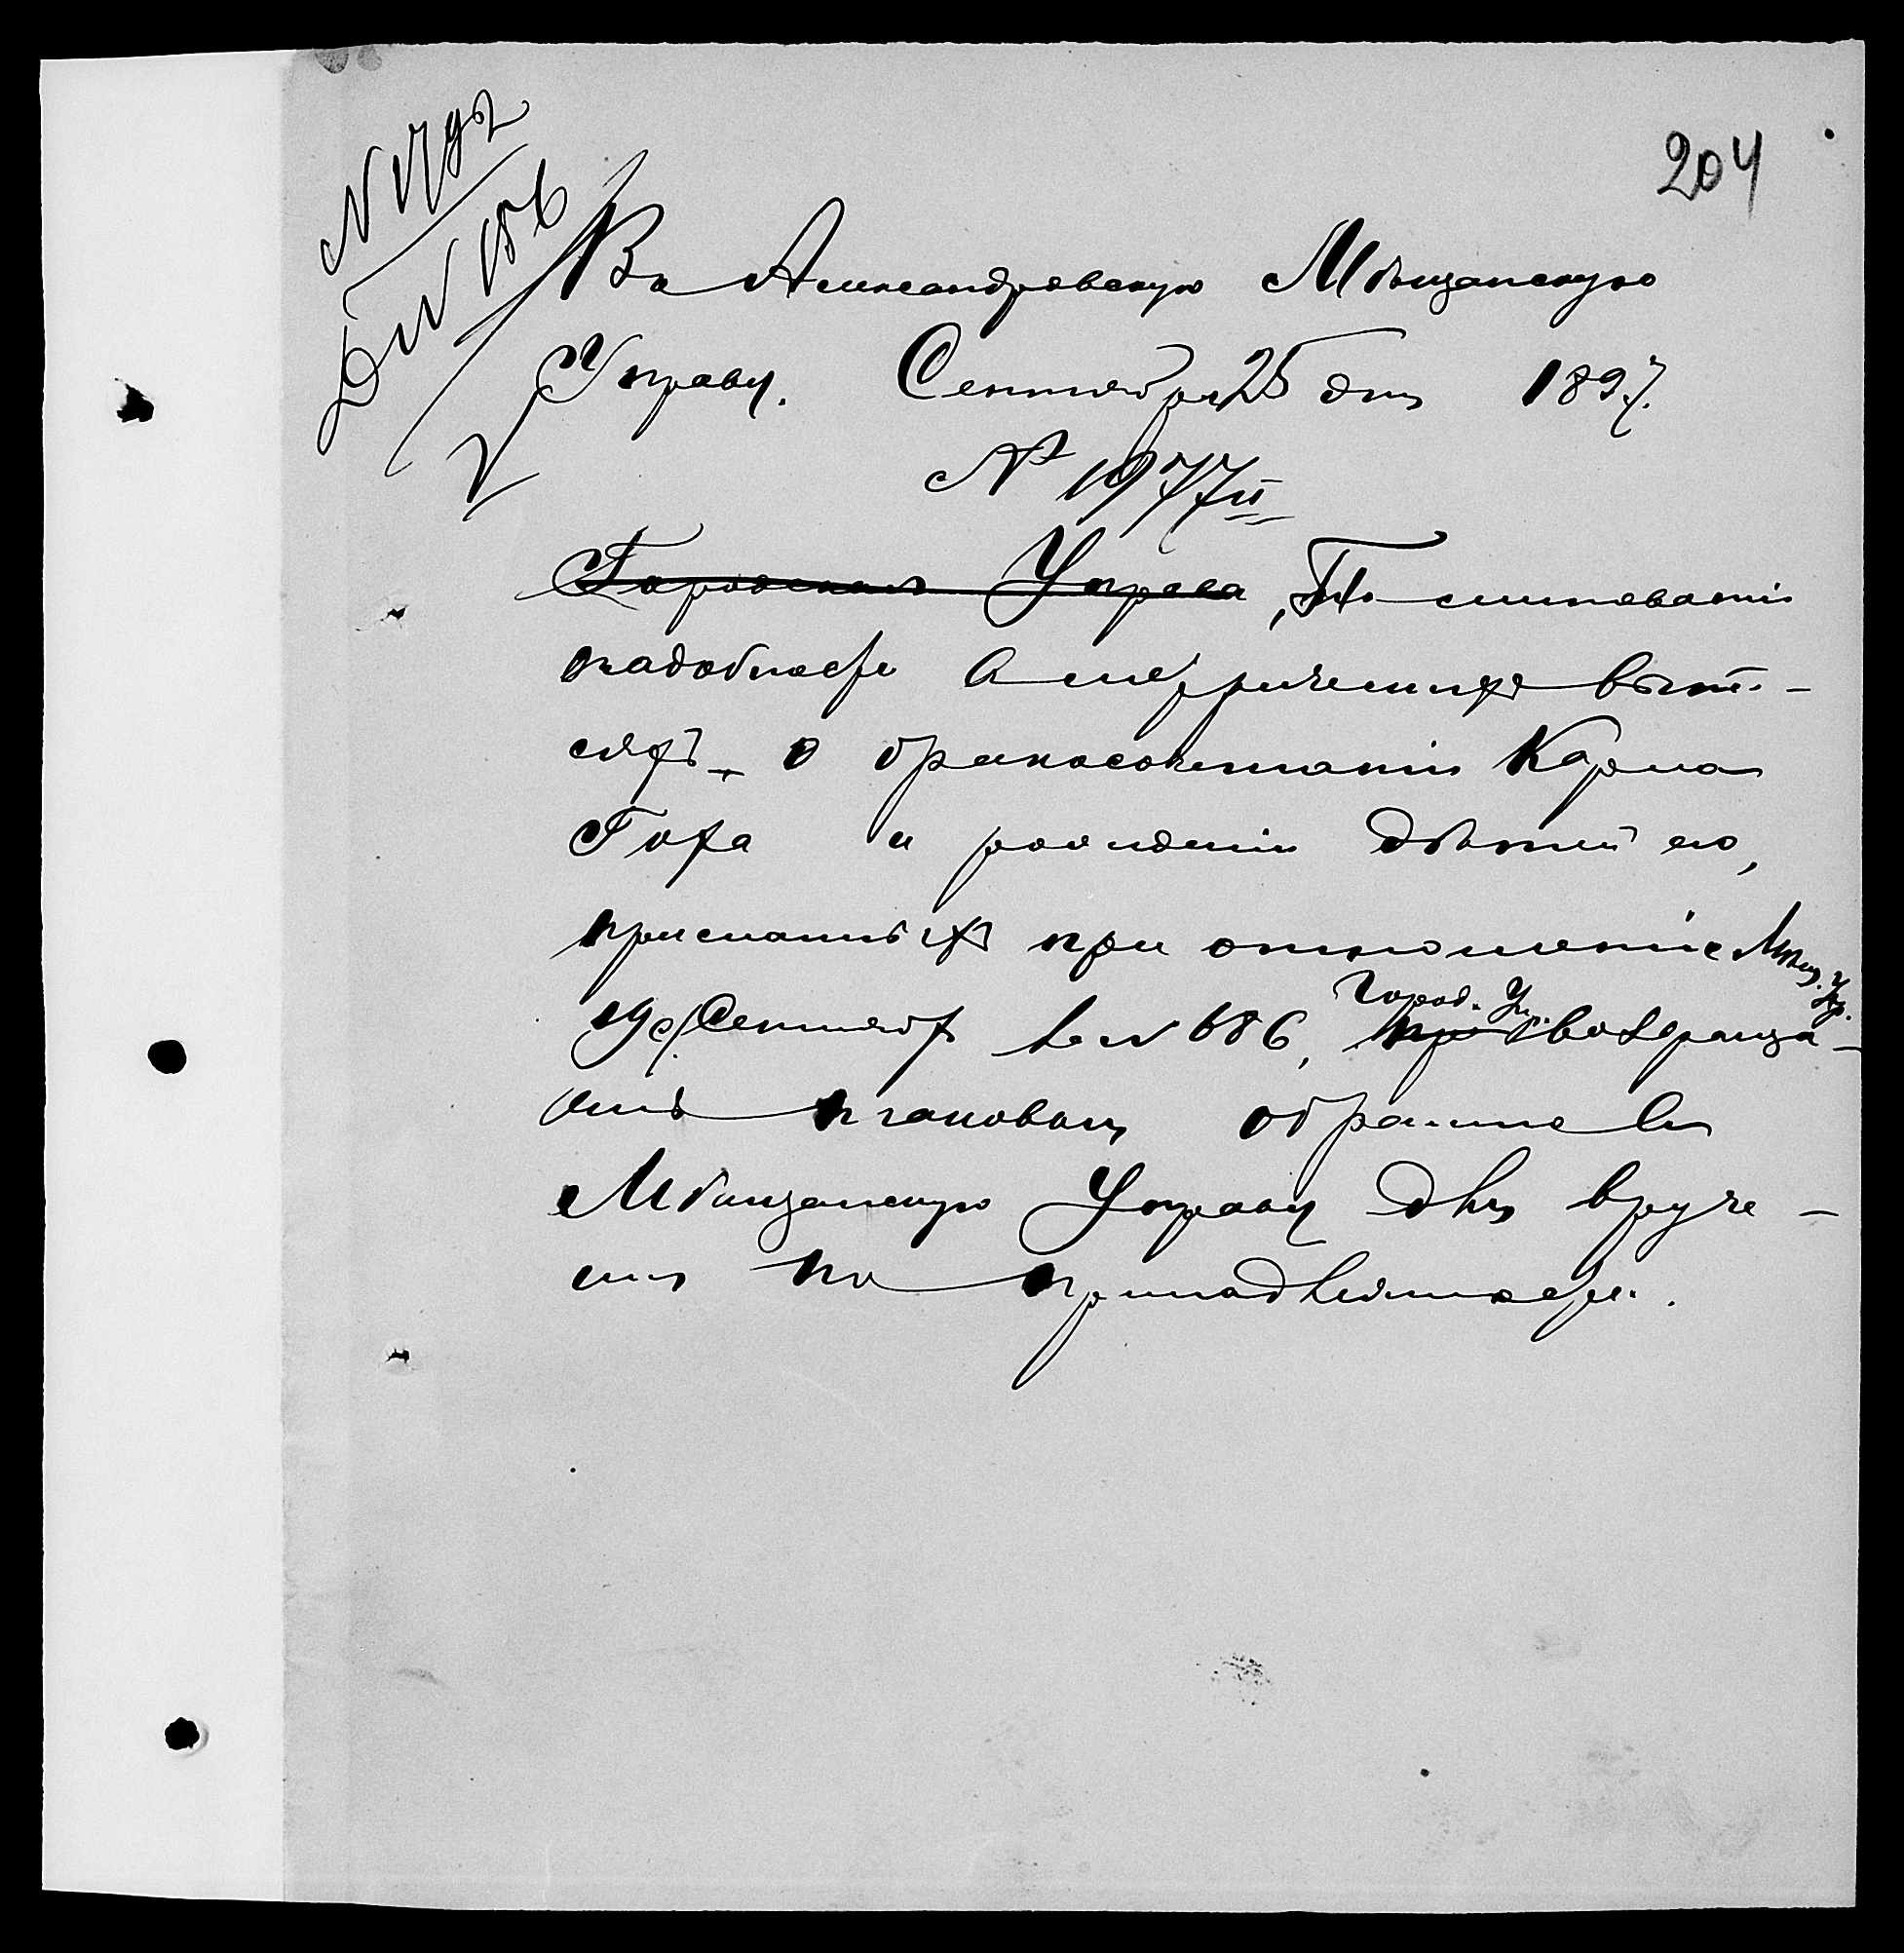 204
N 1792
Д N 156
Въ Александровскую Мѣщанскую
Управу. Сентября 25 дня 1897.
№ 1977
Городская Управа, По минованіи
надобности въ метрическихъ выпи-
сяхъ о бракосочетаніи Карла
Гофа и рожденіи дѣтей его,
присланныхъ при отношеніи Мѣщ. Упр.
19 с/Сентяб за N 686, Город. Уп. возвраща-
етъ таковыя обратно въ
Мѣщанскую Управу для вруче-
нія по принадлежности.